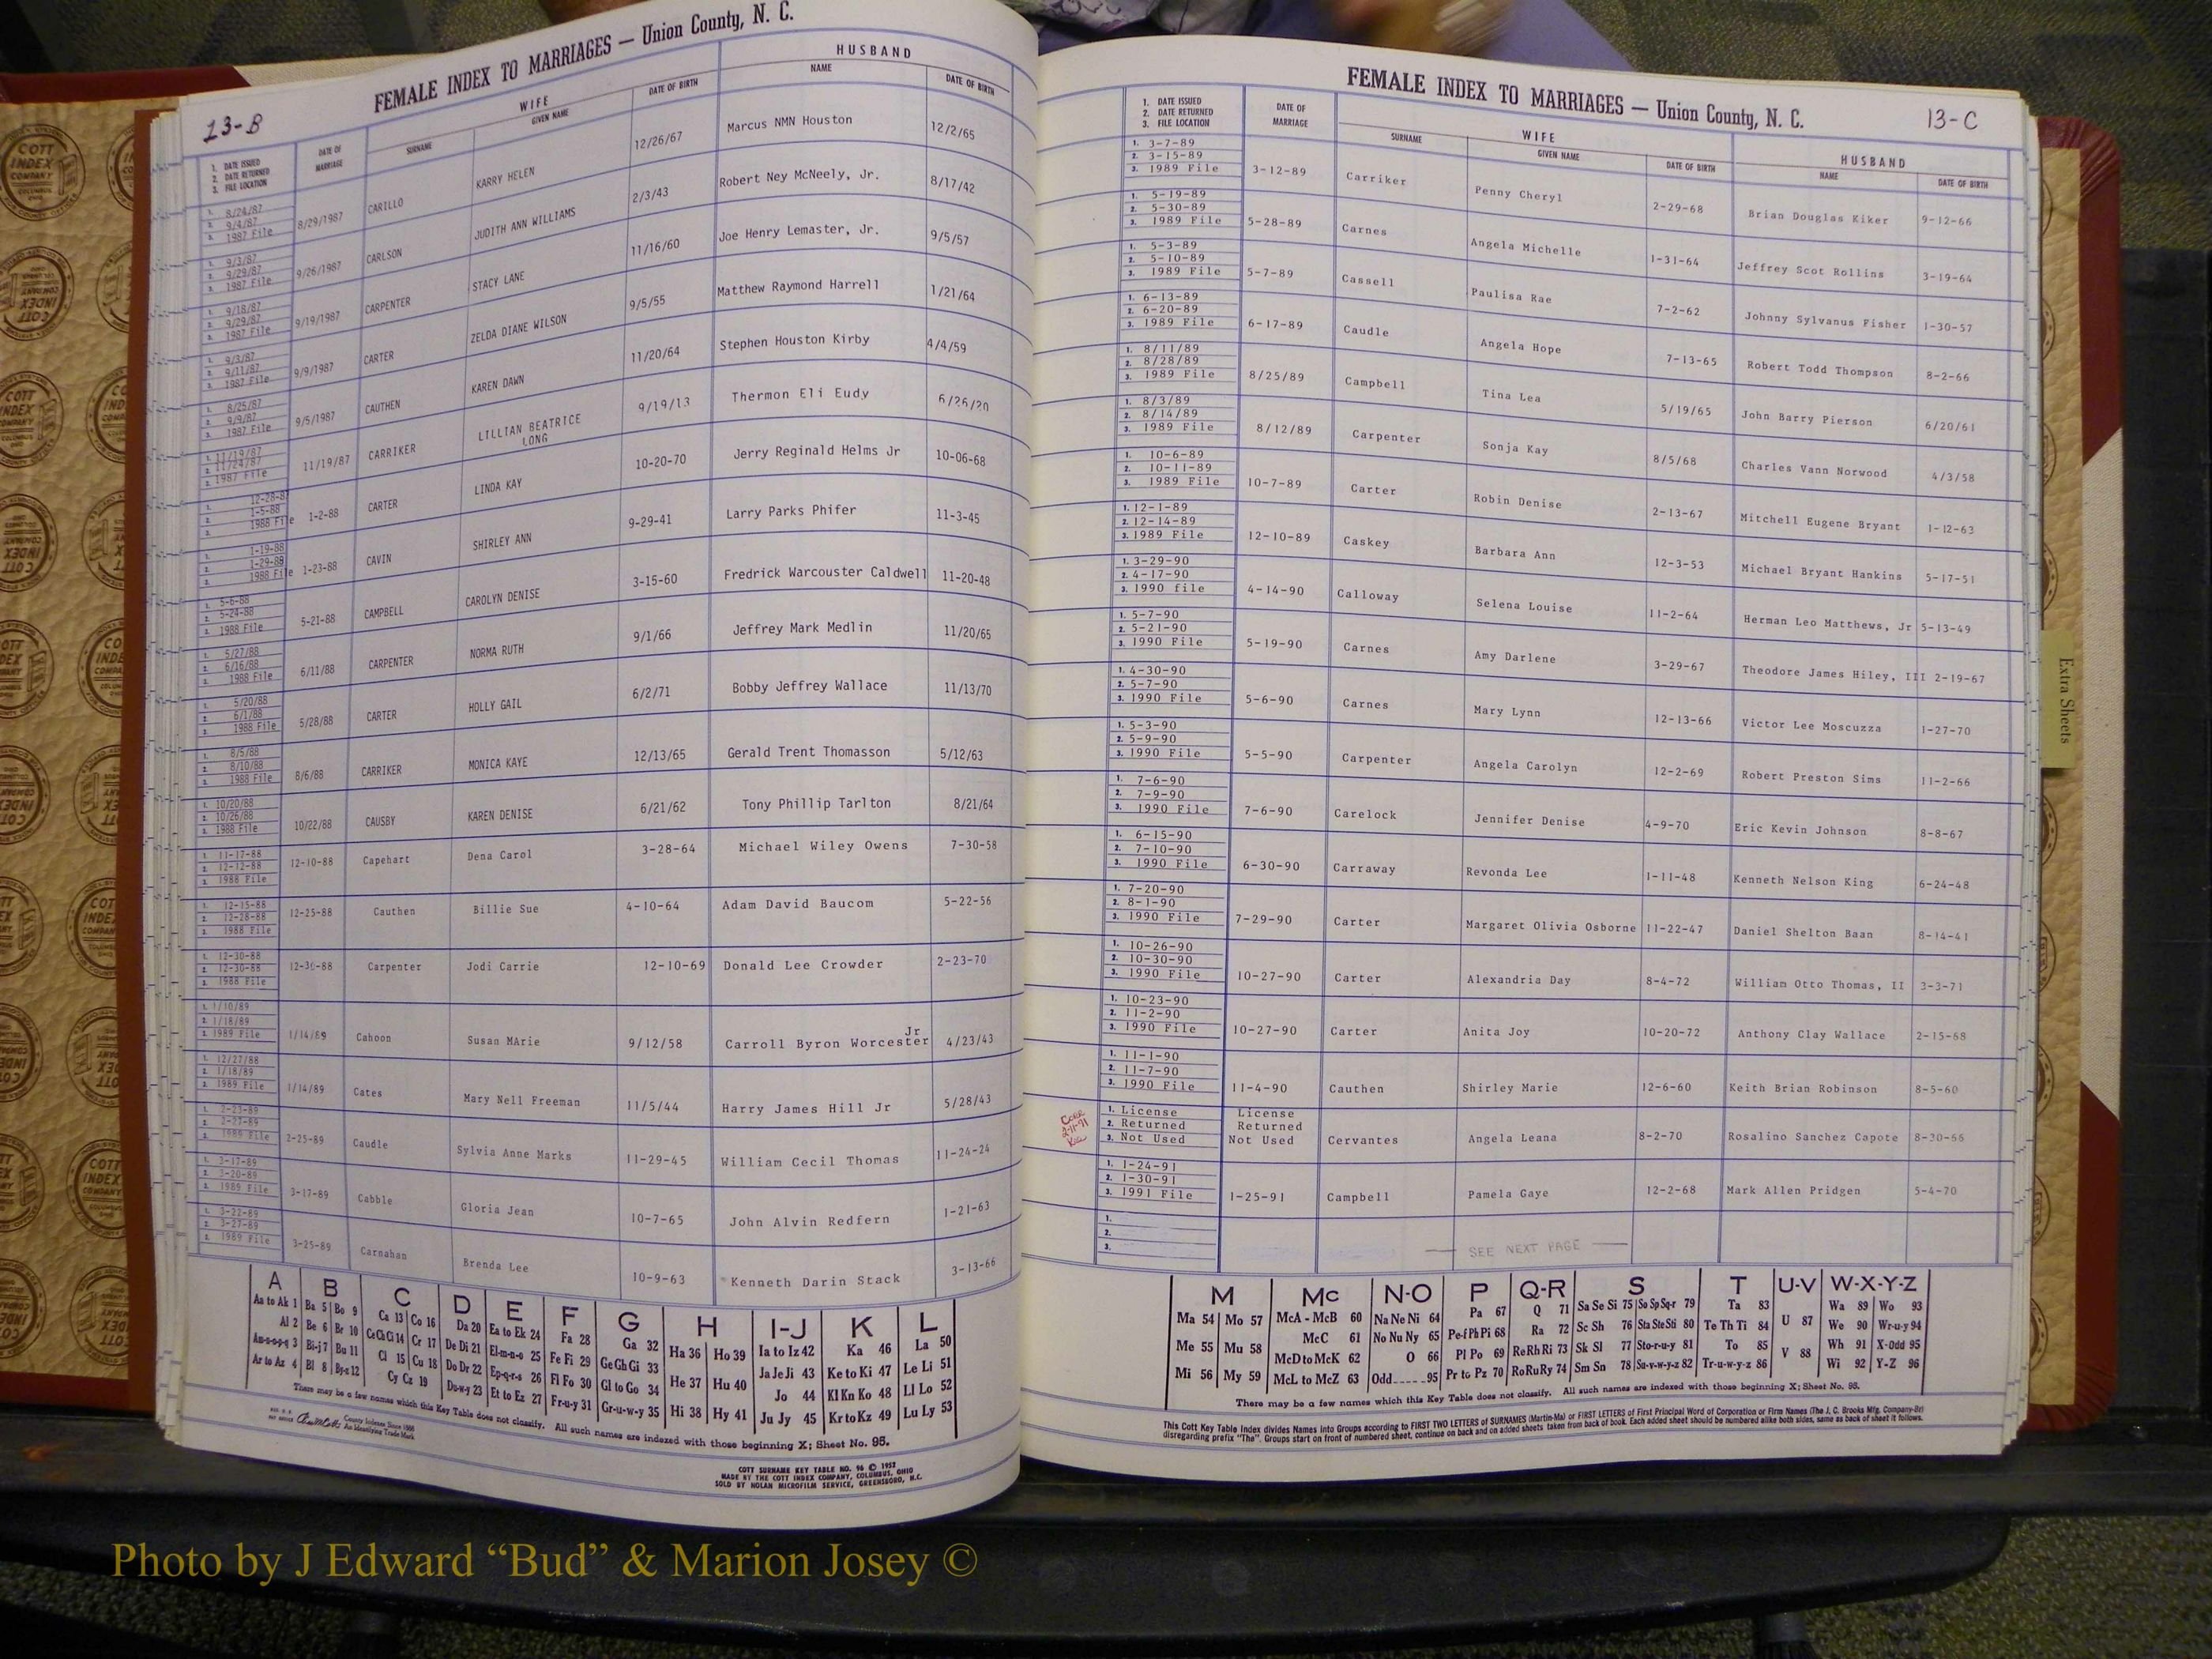 13-B
FEMALE INDEX TO MARRIAGES — Union County, N. C.
1. DATE ISSUED
2. DATE RETURNED
3. FILE LOCATION
DATE OF MARRIAGE
WIFE
SURNAME GIVEN NAME DATE OF BIRTH
HUSBAND
NAME DATE OF BIRTH
1. 8/24/87
2. 9/4/87
3. 1987 File
8/29/1987 CARILLO KARRY HELEN 12/26/67 Marcus NMN Houston 12/2/65
1. 9/3/87
2. 9/29/87
3. 1987 File
9/26/1987 CARLSON JUDITH ANN WILLIAMS 2/3/43 Robert Ney McNeely, Jr. 8/17/42
1. 9/18/87
2. 9/29/87
3. 1987 File
9/19/1987 CARPENTER STACY LANE 11/16/60 Joe Henry Lemaster, Jr. 9/5/57
1. 9/3/87
2. 9/11/87
3. 1987 File
9/9/1987 CARTER ZELDA DIANE WILSON 9/5/55 Matthew Raymond Harrell 1/21/64
1. 8/25/87
2. 9/9/87
3. 1987 File
9/5/1987 CAUTHEN KAREN DAWN 11/20/64 Stephen Houston Kirby 4/4/59
1. 11/19/87
2. 11/24/87
3. 1987 File
11/19/87 CARRIKER LILLIAN BEATRICE LONG 9/19/13 Thermon Eli Eudy 6/26/20
12-28-87
1-5-88
1988 File
1-2-88 CARTER LINDA KAY 10-20-70 Jerry Reginald Helms Jr 10-06-68
1-19-88
1-29-88
1988 File
1-23-88 CAVIN SHIRLEY ANN 9-29-41 Larry Parks Phifer 11-3-45
1. 5-6-88
2. 5-24-88
3. 1988 File
5-21-88 CAMPBELL CAROLYN DENISE 3-15-60 Fredrick Warcouster Caldwell 11-20-48
1. 5/27/88
2. 6/16/88
3. 1988 File
6/11/88 CARPENTER NORMA RUTH 9/1/66 Jeffrey Mark Medlin 11/20/65
1. 5/20/88
2. 6/1/88
3. 1988 File
5/28/88 CARTER HOLLY GAIL 6/2/71 Bobby Jeffrey Wallace 11/13/70
1. 8/5/88
2. 8/10/88
3. 1988 File
8/6/88 CARRIKER MONICA KAYE 12/13/65 Gerald Trent Thomasson 5/12/63
1. 10/20/88
2. 10/26/88
3. 1988 File
10/22/88 CAUSBY KAREN DENISE 6/21/62 Tony Phillip Tarlton 8/21/64
1. 11-17-88
2. 12-12-88
3. 1988 File
12-10-88 Capehart Dena Carol 3-28-64 Michael Wiley Owens 7-30-58
1. 12-15-88
2. 12-28-88
3. 1988 File
12-25-88 Cauthen Billie Sue 4-10-64 Adam David Baucom 5-22-56
1. 12-30-88
2. 12-30-88
3. 1988 File
12-30-88 Carpenter Jodi Carrie 12-10-69 Donald Lee Crowder 2-23-70
1. 1/10/89
2. 1/18/89
3. 1989 File
1/14/89 Cahoon Susan MArie 9/12/58 Carroll Byron Worcester Jr 4/23/43
1. 12/27/88
2. 1/18/89
3. 1989 File
1/14/89 Cates Mary Nell Freeman 11/5/44 Harry James Hill Jr 5/28/43
1. 2-23-89
2. 2-27-89
3. 1989 File
2-25-89 Caudle Sylvia Anne Marks 11-29-45 William Cecil Thomas 11-24-24
1. 3-17-89
2. 3-20-89
3. 1989 File
3-17-89 Cabble Gloria Jean 10-7-65 John Alvin Redfern 1-21-63
1. 3-22-89
2. 3-27-89
3. 1989 File
3-25-89 Carnahan Brenda Lee 10-9-63 Kenneth Darin Stack 3-13-66
A B C D E F G H I-J K L
Aa to Ak 1 Ba 5 Bo 9 Ca 13 Co 16 Da 20 Ea to Ek 24 Fa 28 Ga 32 Ha 36 Ho 39 Ia to Iz 42 Ka 46 La 50
Al 2 Be 6 Br 10 Ce Ch Ci 14 Cr 17 De Di 21 El-m-n-o 25 Fe Fi 29 Ge Gh Gi 33 He 37 Hu 40 Ja Je Ji 43 Ke to Ki 47 Le Li 51
Am-n-o-p-q 3 Bi-j 7 Bu 11 Cl 15 Cu 18 Do Dr 22 Ep-q-r-s 26 Fl Fo 30 Gl to Go 34 Hi 38 Hy 41 Jo 44 Kl Kn Ko 48 Ll Lo 52
Ar to Az 4 Bl 8 By-z 12 Cy Cz 19 Du-w-y 23 Et to Ez 27 Fr-u-y 31 Gr-u-w-y 35 Ju Jy 45 Kr to Kz 49 Lu Ly 53
There may be a few names which this Key Table does not classify. All such names are indexed with those beginning X; Sheet No. 95.
County Indexes Since 1888
An Identifying Trade Mark
COTT SURNAME KEY TABLE NO. 96 © 1953
MADE BY THE COTT INDEX COMPANY, COLUMBUS, OHIO
SOLD BY NOLAN MICROFILM SERVICE, GREENSBORO, N.C.
FEMALE INDEX TO MARRIAGES — Union County, N. C.
13-C
1. DATE ISSUED
2. DATE RETURNED
3. FILE LOCATION
DATE OF MARRIAGE
WIFE
SURNAME GIVEN NAME DATE OF BIRTH
HUSBAND
NAME DATE OF BIRTH
1. 3-7-89
2. 3-15-89
3. 1989 File
3-12-89 Carriker Penny Cheryl 2-29-68 Brian Douglas Kiker 9-12-66
1. 5-19-89
2. 5-30-89
3. 1989 File
5-28-89 Carnes Angela Michelle 1-31-64 Jeffrey Scot Rollins 3-19-64
1. 5-3-89
2. 5-10-89
3. 1989 File
5-7-89 Cassell Paulisa Rae 7-2-62 Johnny Sylvanus Fisher 1-30-57
1. 6-13-89
2. 6-20-89
3. 1989 File
6-17-89 Caudle Angela Hope 7-13-65 Robert Todd Thompson 8-2-66
1. 8/11/89
2. 8/28/89
3. 1989 File
8/25/89 Campbell Tina Lea 5/19/65 John Barry Pierson 6/20/61
1. 8/3/89
2. 8/14/89
3. 1989 File
8/12/89 Carpenter Sonja Kay 8/5/68 Charles Vann Norwood 4/3/58
1. 10-6-89
2. 10-11-89
3. 1989 File
10-7-89 Carter Robin Denise 2-13-67 Mitchell Eugene Bryant 1-12-63
1. 12-1-89
2. 12-14-89
3. 1989 File
12-10-89 Caskey Barbara Ann 12-3-53 Michael Bryant Hankins 5-17-51
1. 3-29-90
2. 4-17-90
3. 1990 file
4-14-90 Calloway Selena Louise 11-2-64 Herman Leo Matthews, Jr 5-13-49
1. 5-7-90
2. 5-21-90
3. 1990 File
5-19-90 Carnes Amy Darlene 3-29-67 Theodore James Hiley, III 2-19-67
1. 4-30-90
2. 5-7-90
3. 1990 File
5-6-90 Carnes Mary Lynn 12-13-66 Victor Lee Moscuzza 1-27-70
1. 5-3-90
2. 5-9-90
3. 1990 File
5-5-90 Carpenter Angela Carolyn 12-2-69 Robert Preston Sims 11-2-66
1. 7-6-90
2. 7-9-90
3. 1990 File
7-6-90 Carelock Jennifer Denise 4-9-70 Eric Kevin Johnson 8-8-67
1. 6-15-90
2. 7-10-90
3. 1990 File
6-30-90 Carraway Revonda Lee 1-11-48 Kenneth Nelson King 6-24-48
1. 7-20-90
2. 8-1-90
3. 1990 File
7-29-90 Carter Margaret Olivia Osborne 11-22-47 Daniel Shelton Baan 8-14-41
1. 10-26-90
2. 10-30-90
3. 1990 File
10-27-90 Carter Alexandria Day 8-4-72 William Otto Thomas, II 3-3-71
1. 10-23-90
2. 11-2-90
3. 1990 File
10-27-90 Carter Anita Joy 10-20-72 Anthony Clay Wallace 2-15-68
1. 11-1-90
2. 11-7-90
3. 1990 File
11-4-90 Cauthen Shirley Marie 12-6-60 Keith Brian Robinson 8-5-60
1. License
2. Returned
3. Not Used
License Returned Not Used Cervantes Angela Leana 8-2-70 Rosalino Sanchez Capote 8-30-66
1. 1-24-91
2. 1-30-91
3. 1991 File
1-25-91 Campbell Pamela Gaye 12-2-68 Mark Allen Pridgen 5-4-70
1.
2.
3.
— SEE NEXT PAGE —
M Mc N-O P Q-R S T U-V W-X-Y-Z
Ma 54 Mo 57 McA - McB 60 Na Ne Ni 64 Pa 67 Q 71 Sa Se Si 75 So Sp Sq-r 79 Ta 83 U 87 Wa 89 Wo 93
Me 55 Mu 58 McC 61 No Nu Ny 65 Pe-f Ph Pi 68 Ra 72 Sc Sh 76 Sta Ste Sti 80 Te Th Ti 84 V 88 We 90 Wr-u-y 94
Mi 56 My 59 McD to McK 62 O 66 Pl Po 69 Re Rh Ri 73 Sk Sl 77 Sto-r-u-y 81 To 85 Wh 91 X-Odd 95
McL to McZ 63 Odd.....95 Pr to Pz 70 Ro Ru Ry 74 Sm Sn 78 Su-v-w-y-z 82 Tr-u-w-y-z 86 Wi 92 Y-Z 96
There may be a few names which this Key Table does not classify. All such names are indexed with those beginning X; Sheet No. 95.
This Cott Key Table Index divides Names into Groups according to FIRST TWO LETTERS of SURNAMES (Martin-Ma) or FIRST LETTERS of First Principal Word of Corporation or Firm Names (The J. C. Brooks Mfg. Company-Br)
disregarding prefix "The". Groups start on front of numbered sheet, continue on back and on added sheets taken from back of book. Each added sheet should be numbered alike both sides, same as back of sheet it follows.
Extra Sheets
COTT INDEX COMPANY
Photo by J Edward “Bud” & Marion Josey ©